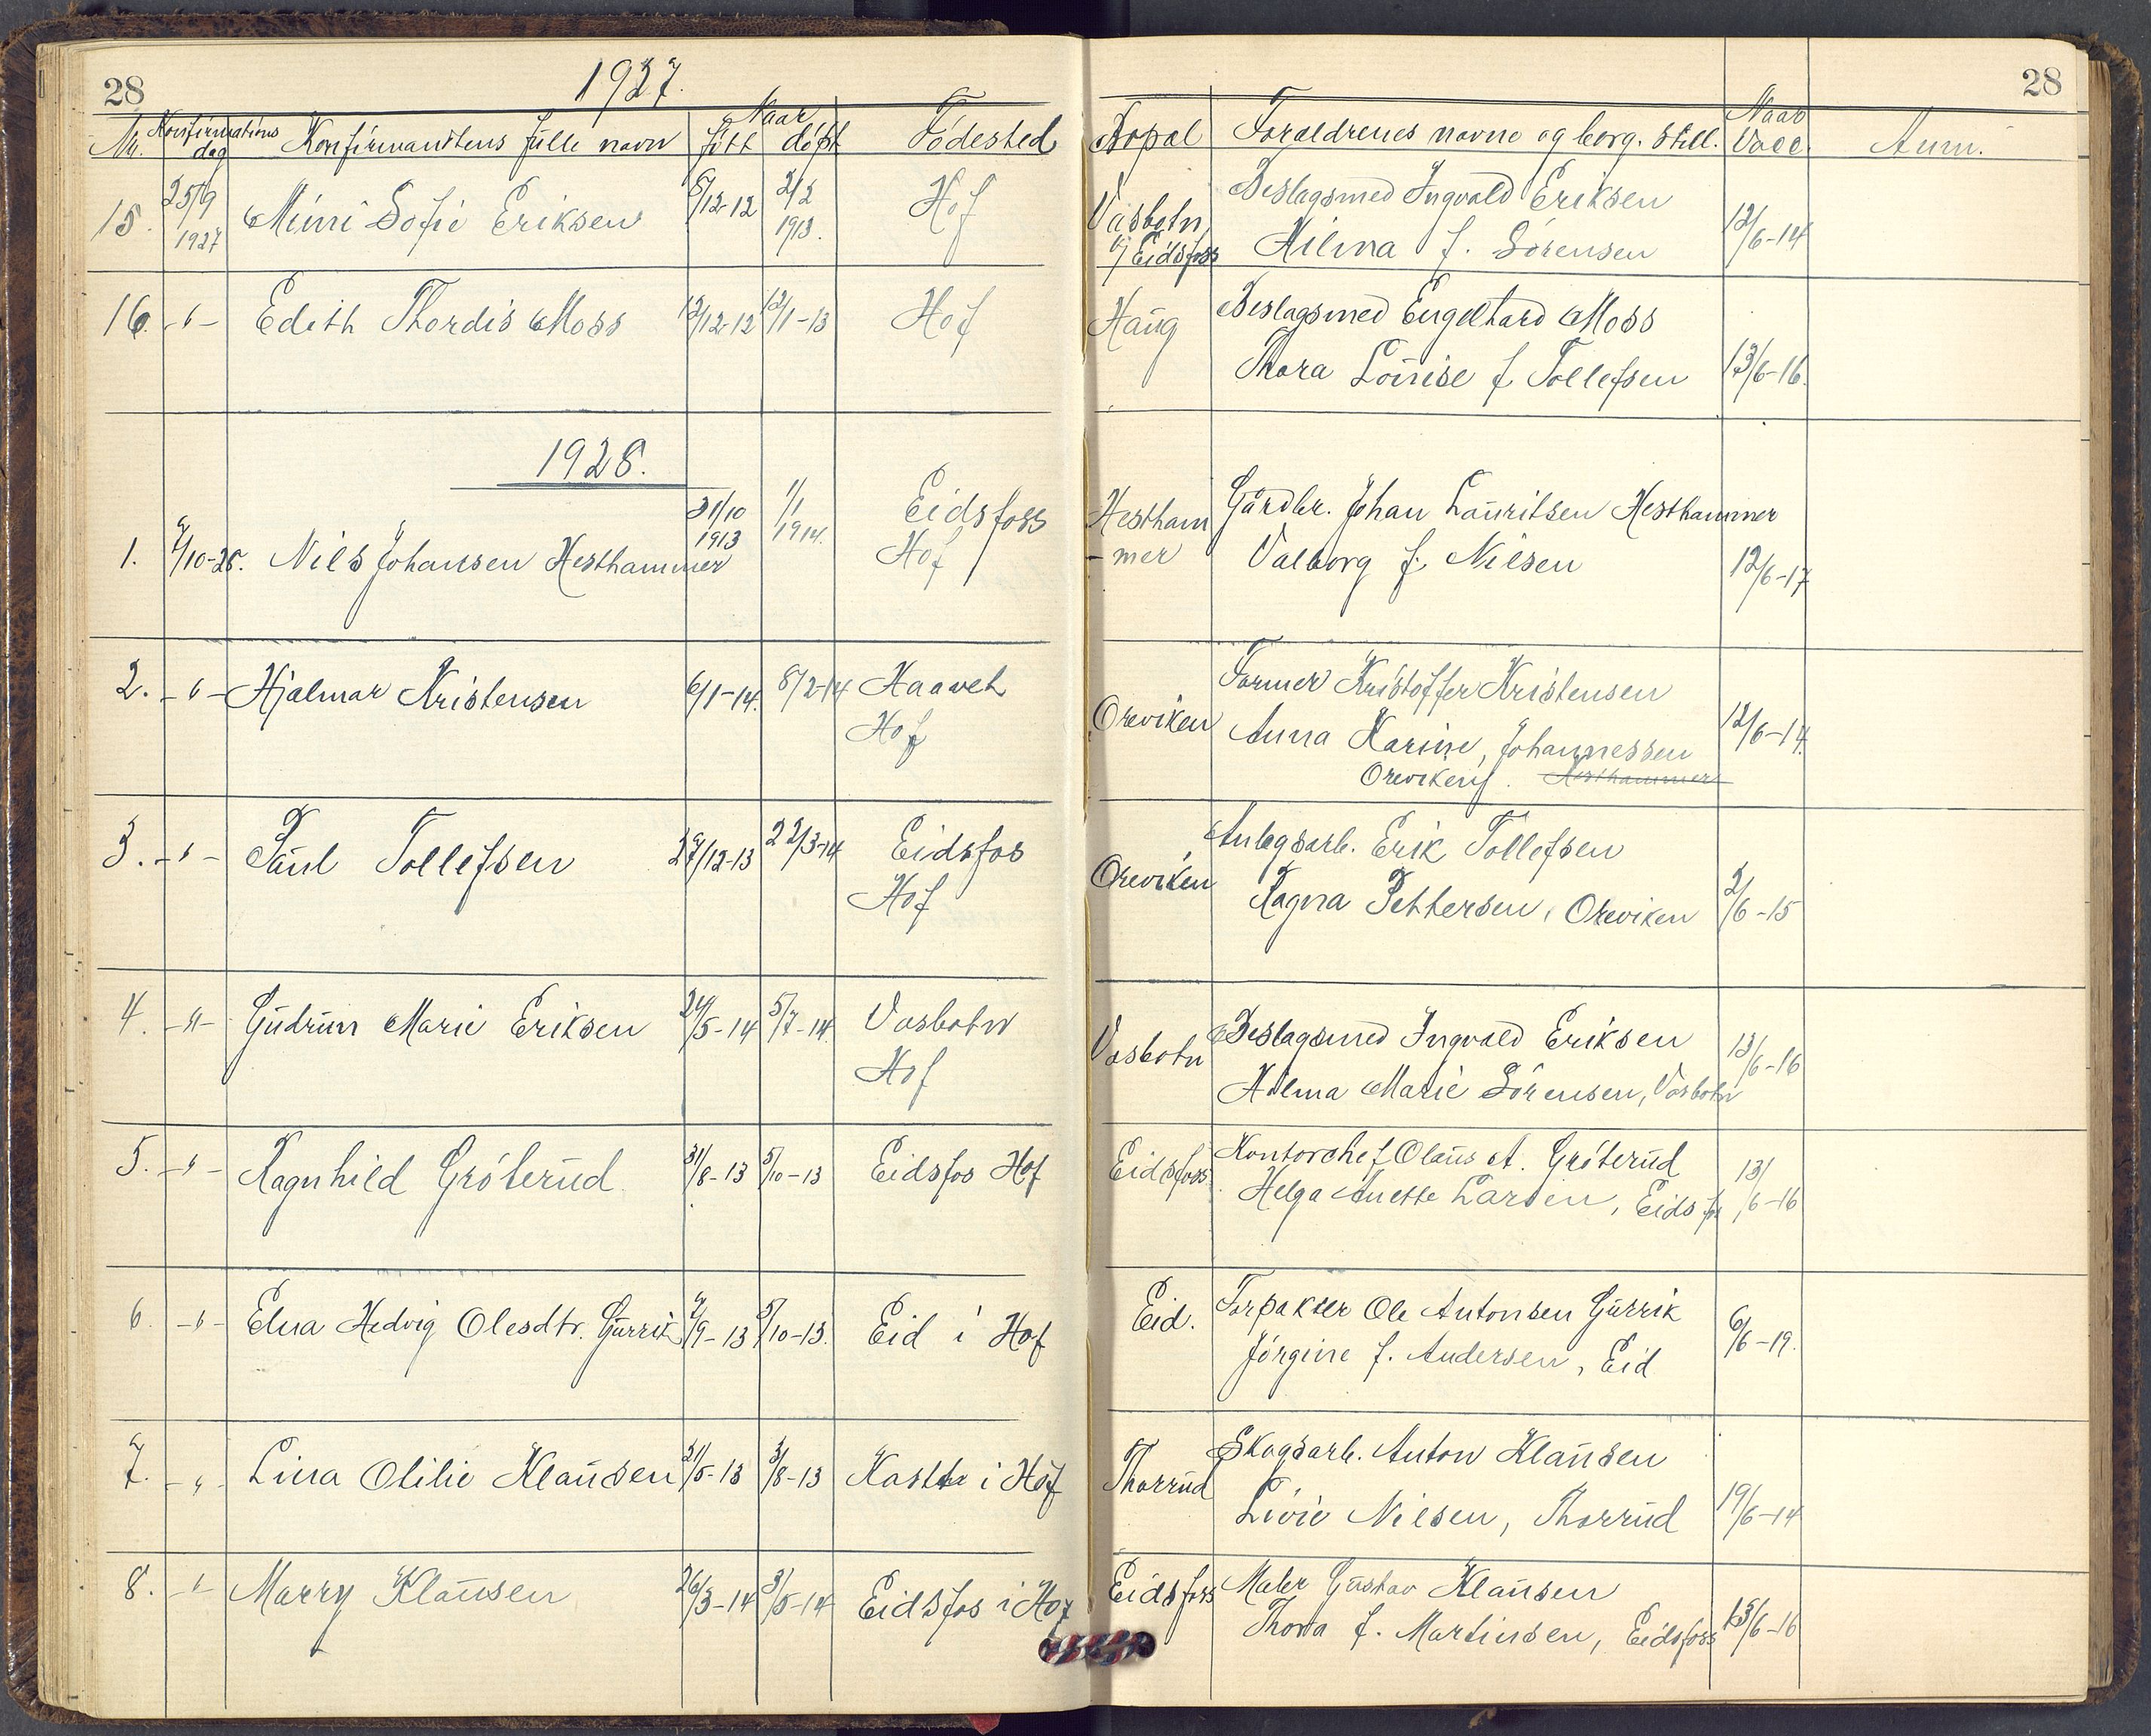 28
1927.
Nr. Konfirmations dag Konfirmantens fulle navn Naar född döpt Födested
15. 25/9 1927 Mimi Sofie Eriksen 8/12-12 2/2 1913. Hof
16. -"- Edith Thordis Moss 12/12-12 12/1-13 Hof
1928.
1. 7/10-28. Nils Johansen Hesthammer 31/10 1913 1/1 1914. Eidsfoss
Hof
2. -"- Hjalmar Kristensen 6/1-14. 8/2-14 Haaveth
Hof
3. -"- Paul Tollefsen 27/12-13 22/3-14 Eidsfos
Hof
4. -"- Gudrun Marie Eriksen 24/5-14 5/7-14. Vasbotn
Hof
5. -"- Ragnhild Gröterud 31/8-13 5/10-13 Eidsfos Hof
6. -"- Elna Hedvig Olesdtr. Gurrik 7/9-13 5/10-13. Eid i Hof
7. -"- Lina Otilie Klausen 31/5-13 3/8-13 i Hof
8. -"- Marry Klausen 26/3-14 3/5-14 Eidsfos i Hof
28
Bopæl Foraldrenes navne og borg. still. Naar Vacc. Anm.
Vasbotn Beslagsmed Ingvald Eriksen
v/ Eidsfoss Hilma f. Sörensen 12/6-14
Haug Beslagsmed Engelhard Moss
Thora Louise f. Tollefsen 13/6-16.
Hestham Gårdbr. Johan Lauritsen Hesthammer
-mer Valborg f. Nilsen 12/6-17
Former Kristoffer Kristensen
Oreviken Anna Karine, Johannessen 12/6-14.
Oreviken . Hesthammer
Anlegsarb. Erik Tollefsen
Oreviken Ragna Pettersen, Oreviken 2/6-15
Vasbotn Beslagsmed Ingvald Eriksen 13/6-16
Hilma Marie Sörensen, Vasbotn
Eidsfoss Kontorchef Olaus A. Gröterud
Helga Anette Larsen, Eidsfos 13/6-16
Eid. Forpakter Ole Antonsen Gurrik
Jörgine f. Andersen, Eid 6/6-19.
Thorrud Skogsarb. Anton Klausen
Livie Nilsen, Thorrud 19/6-14
Eidsfoss Maler Gustav Klausen
Thora f. Martinsen, Eidsfoss 13/6-16